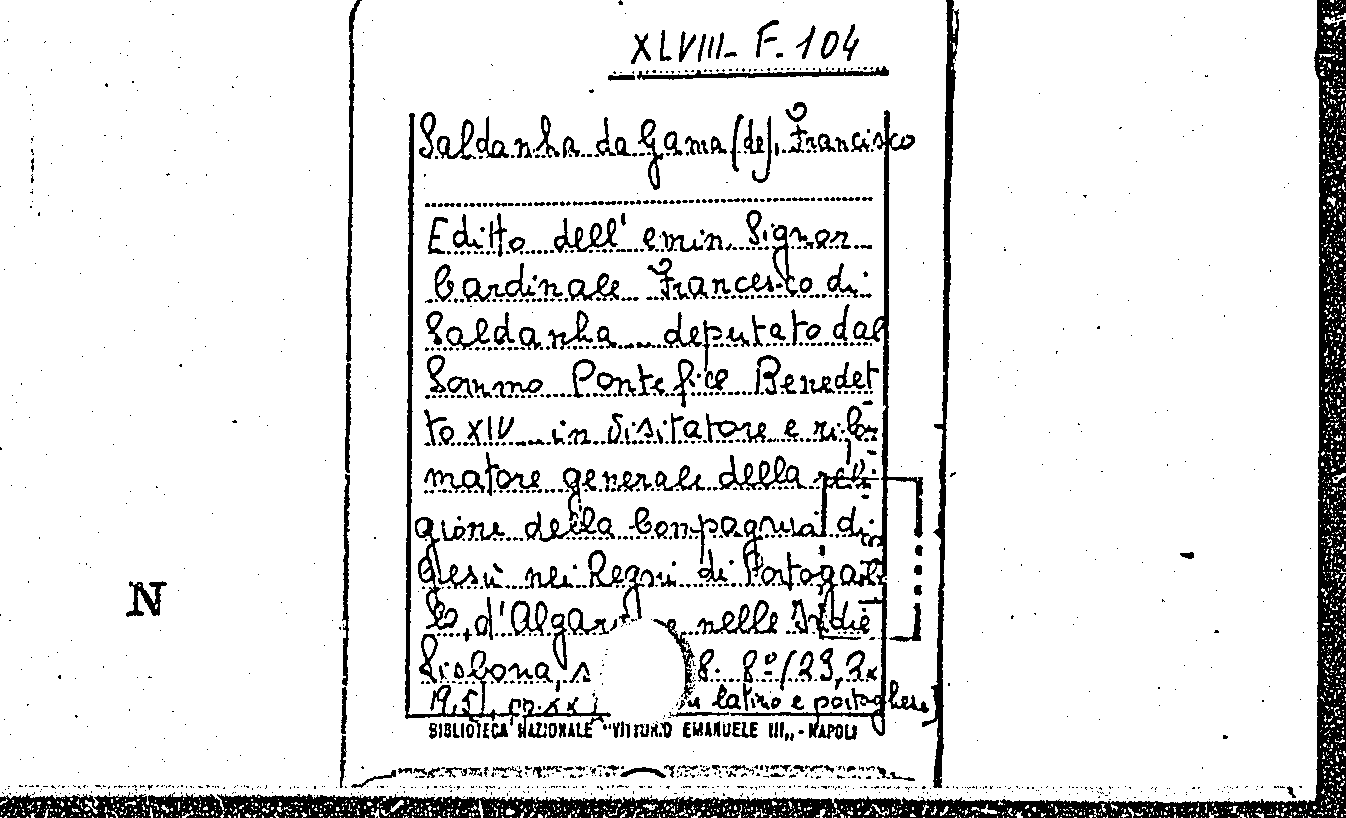 XLVIII- F. 104
Saldanha da Gama (de), Francisco
Editto dell' emin. Signor
Cardinale Francesco di
Saldanha deputato dal
Sommo Pontefice Benedet
to XIV in Visitatore e rifor
matore generale della reli
gione della Compagnia di
Gesù nei Regni di Portogal
lo, d' e nelle Indie
Lisbona, s 8. 8º (23,2x
19,5), pp. latino e portoghese)
N
BIBLIOTECA NAZIONALE "VITTORIO EMANUELE III„ - NAPOLI